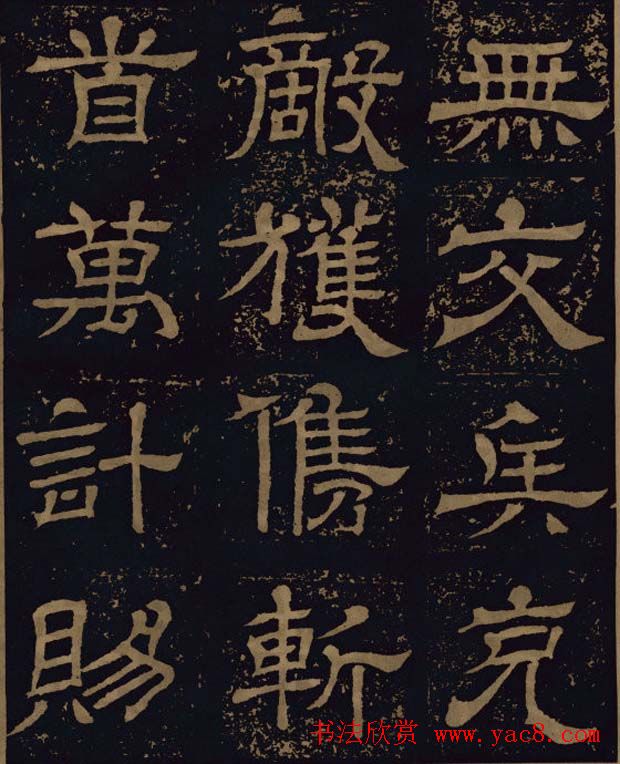 無交兵克
敵獲儁斬
首萬計賜
书法欣赏 www.yac8.com